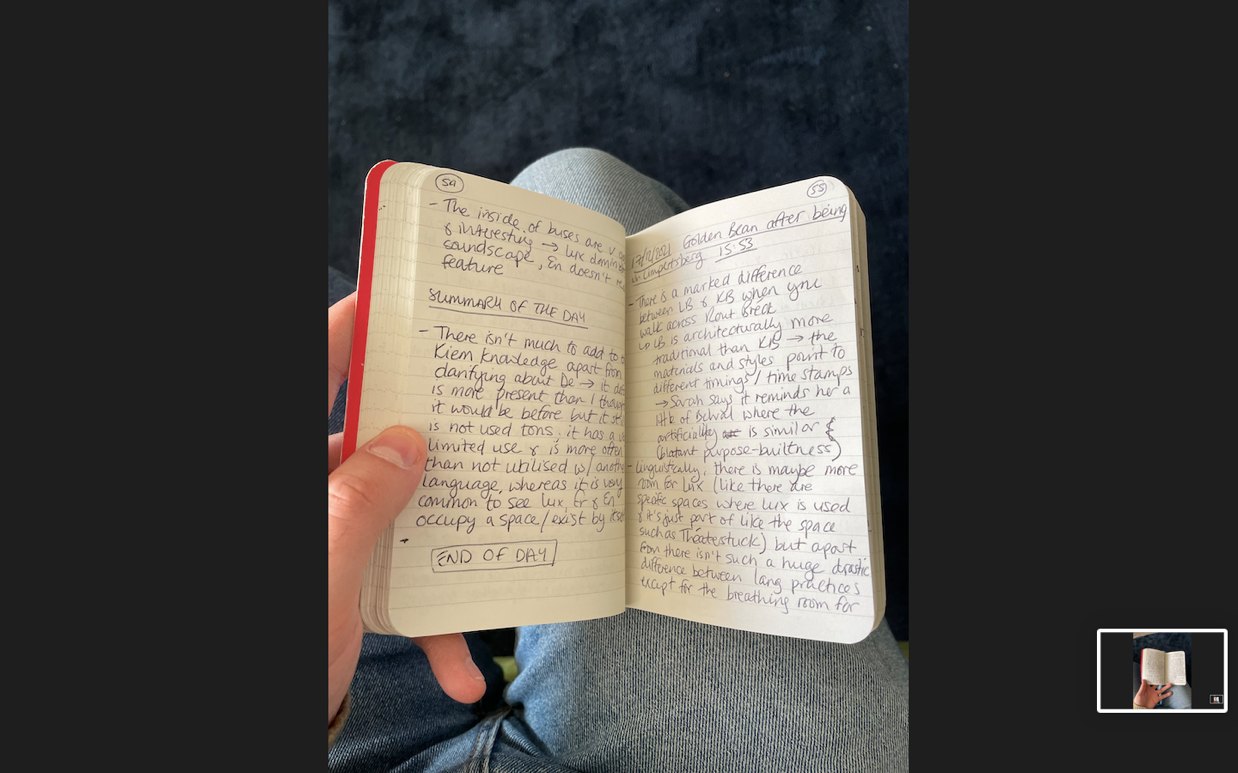 54
- The inside of buses are v
& interesting → lux domin
soundscape, En doesn't
feature
SUMMARY OF THE DAY
- There isn't much to add to
Kiem knowledge apart from
clarifying about De → it
is more present than I thoug
it would be before but it st
is not used tons, it has a
limited use & is more often
than not utilised w/ anothe
language, whereas it is very
common to see lux, fr & En
occupy a space/exist by itse
END OF DAY
55
17/12/2021 Golden Bean after being
in Limpertsberg 15:53
- There is a marked difference
between LB & KB when you
walk across Rout Bréck
↳ LB is architecturally more
traditional than KB → the
materials and styles point to
different timings/time stamps
→ Sarah says it reminds her a
little of Belval where the
artificiality is similar {
(blatant purpose-builtness)
- linguistically, there is maybe more
room for Lux (like there are
specific spaces where lux is used
& it's just part of like the space
such as Théaterstuck) but apart
from there isn't such a huge drastic
difference between lang practices
except for the breathing room for